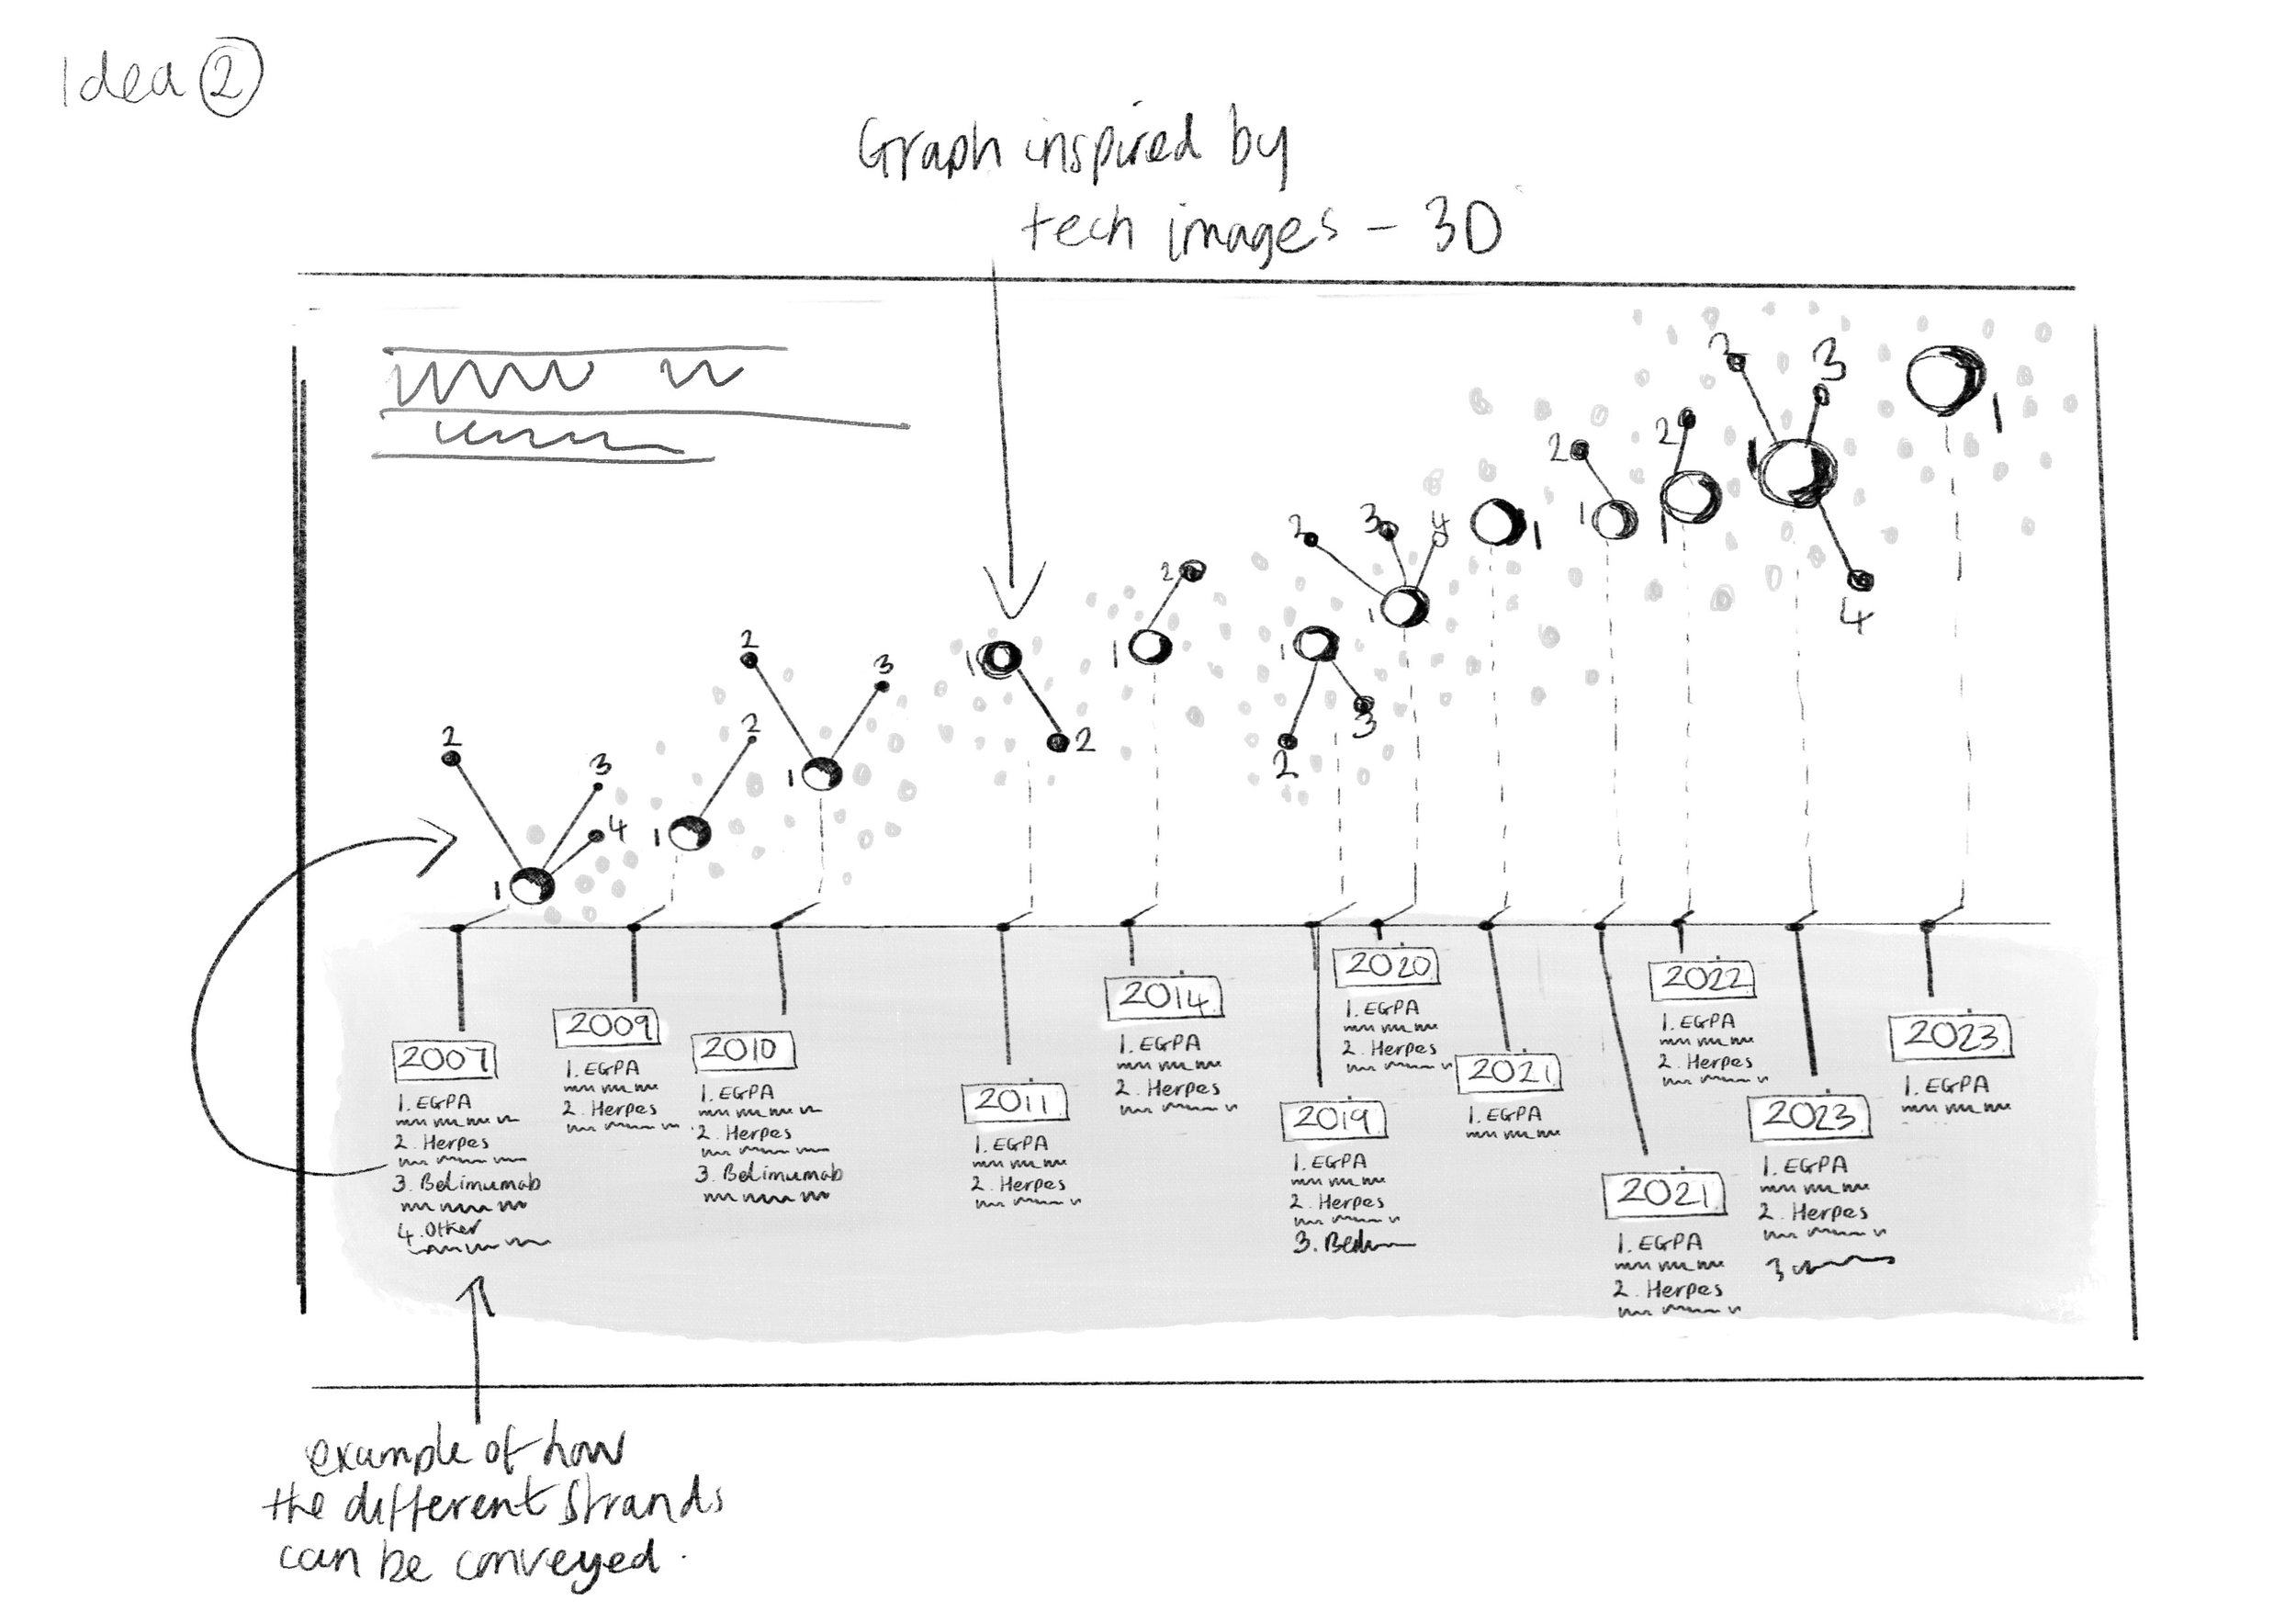 Idea 2
Graph inspired by
tech images - 3D
2
3
4
1
2
1
2
3
1
1
2
2
1
1
2
3
2
3
4
1
1
2
1
2
1
2
3
1
4
1
2007
1. EGPA
2. Herpes
3. Belimumab
4. Other
2009
1. EGPA
2. Herpes
2010
1. EGPA
2. Herpes
3. Belimumab
2011
1. EGPA
2. Herpes
2014
1. EGPA
2. Herpes
2019
1. EGPA
2. Herpes
3.
2020
1. EGPA
2. Herpes
2021
1. EGPA
2021
1. EGPA
2. Herpes
2022
1. EGPA
2. Herpes
2023
1. EGPA
2. Herpes
3
2023
1. EGPA
example of how
the different strands
can be conveyed.